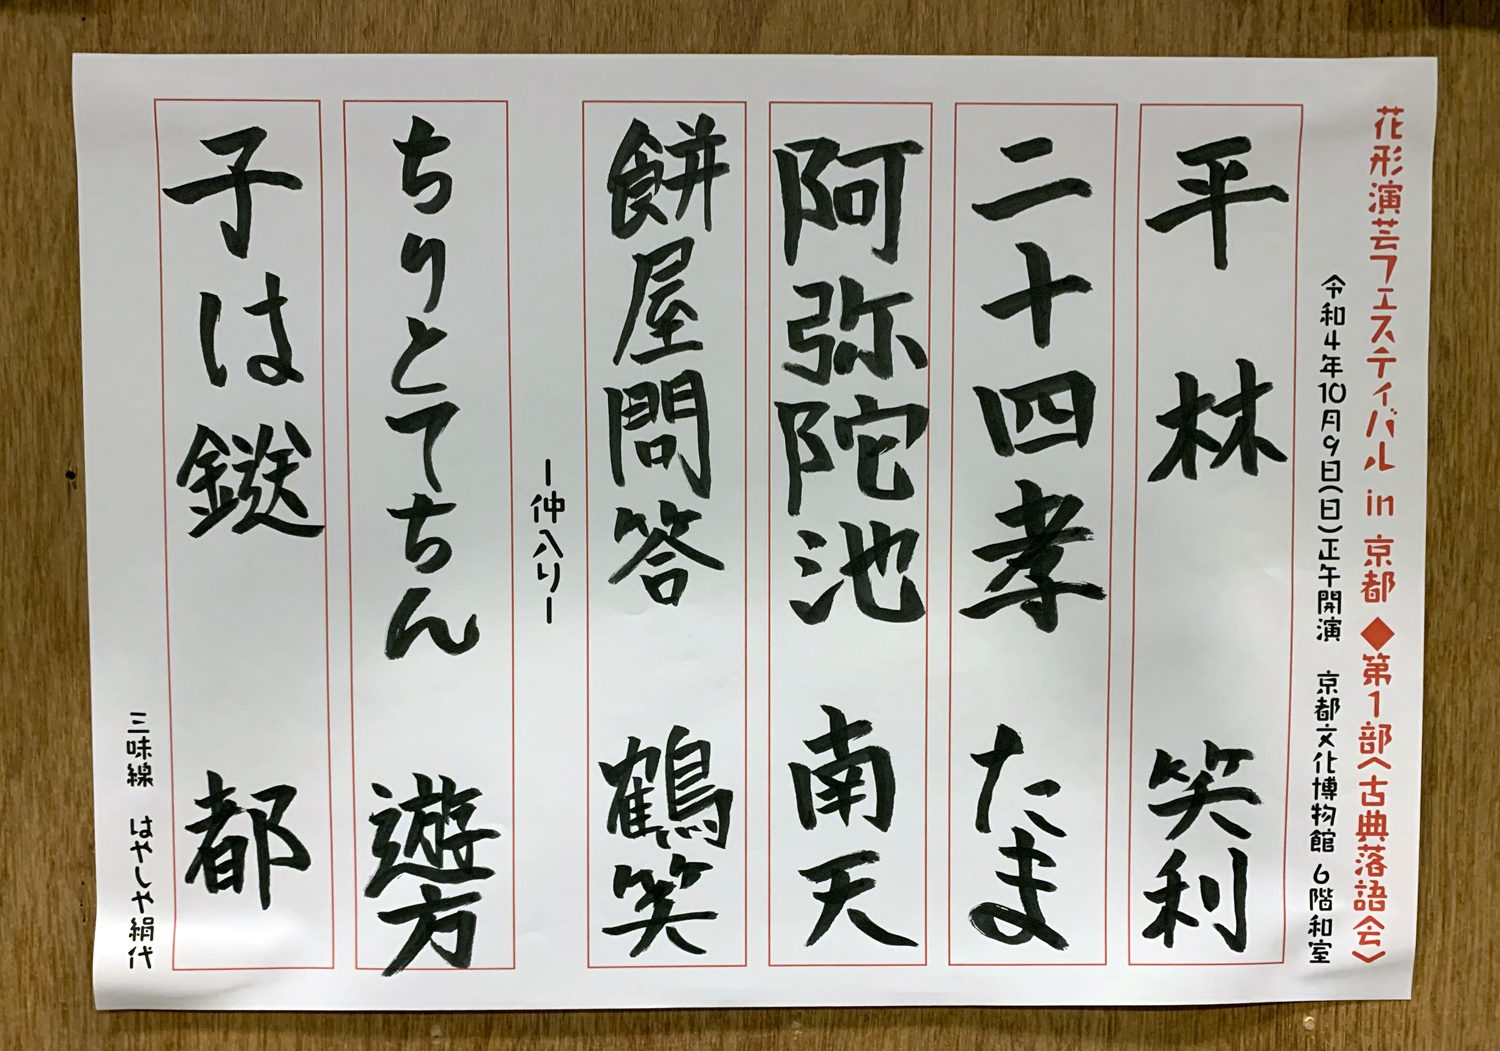 花形演芸フェスティバル in 京都 ◆第1部〈古典落語会〉
令和4年10月9日(日)正午開演 京都文化博物館 6階和室
平林 笑利
二十四孝 たま
阿弥陀池 南天
餅屋問答 鶴笑
ー仲入りー
ちりとてちん 遊方
子は鎹 都
三味線 はやしや絹代